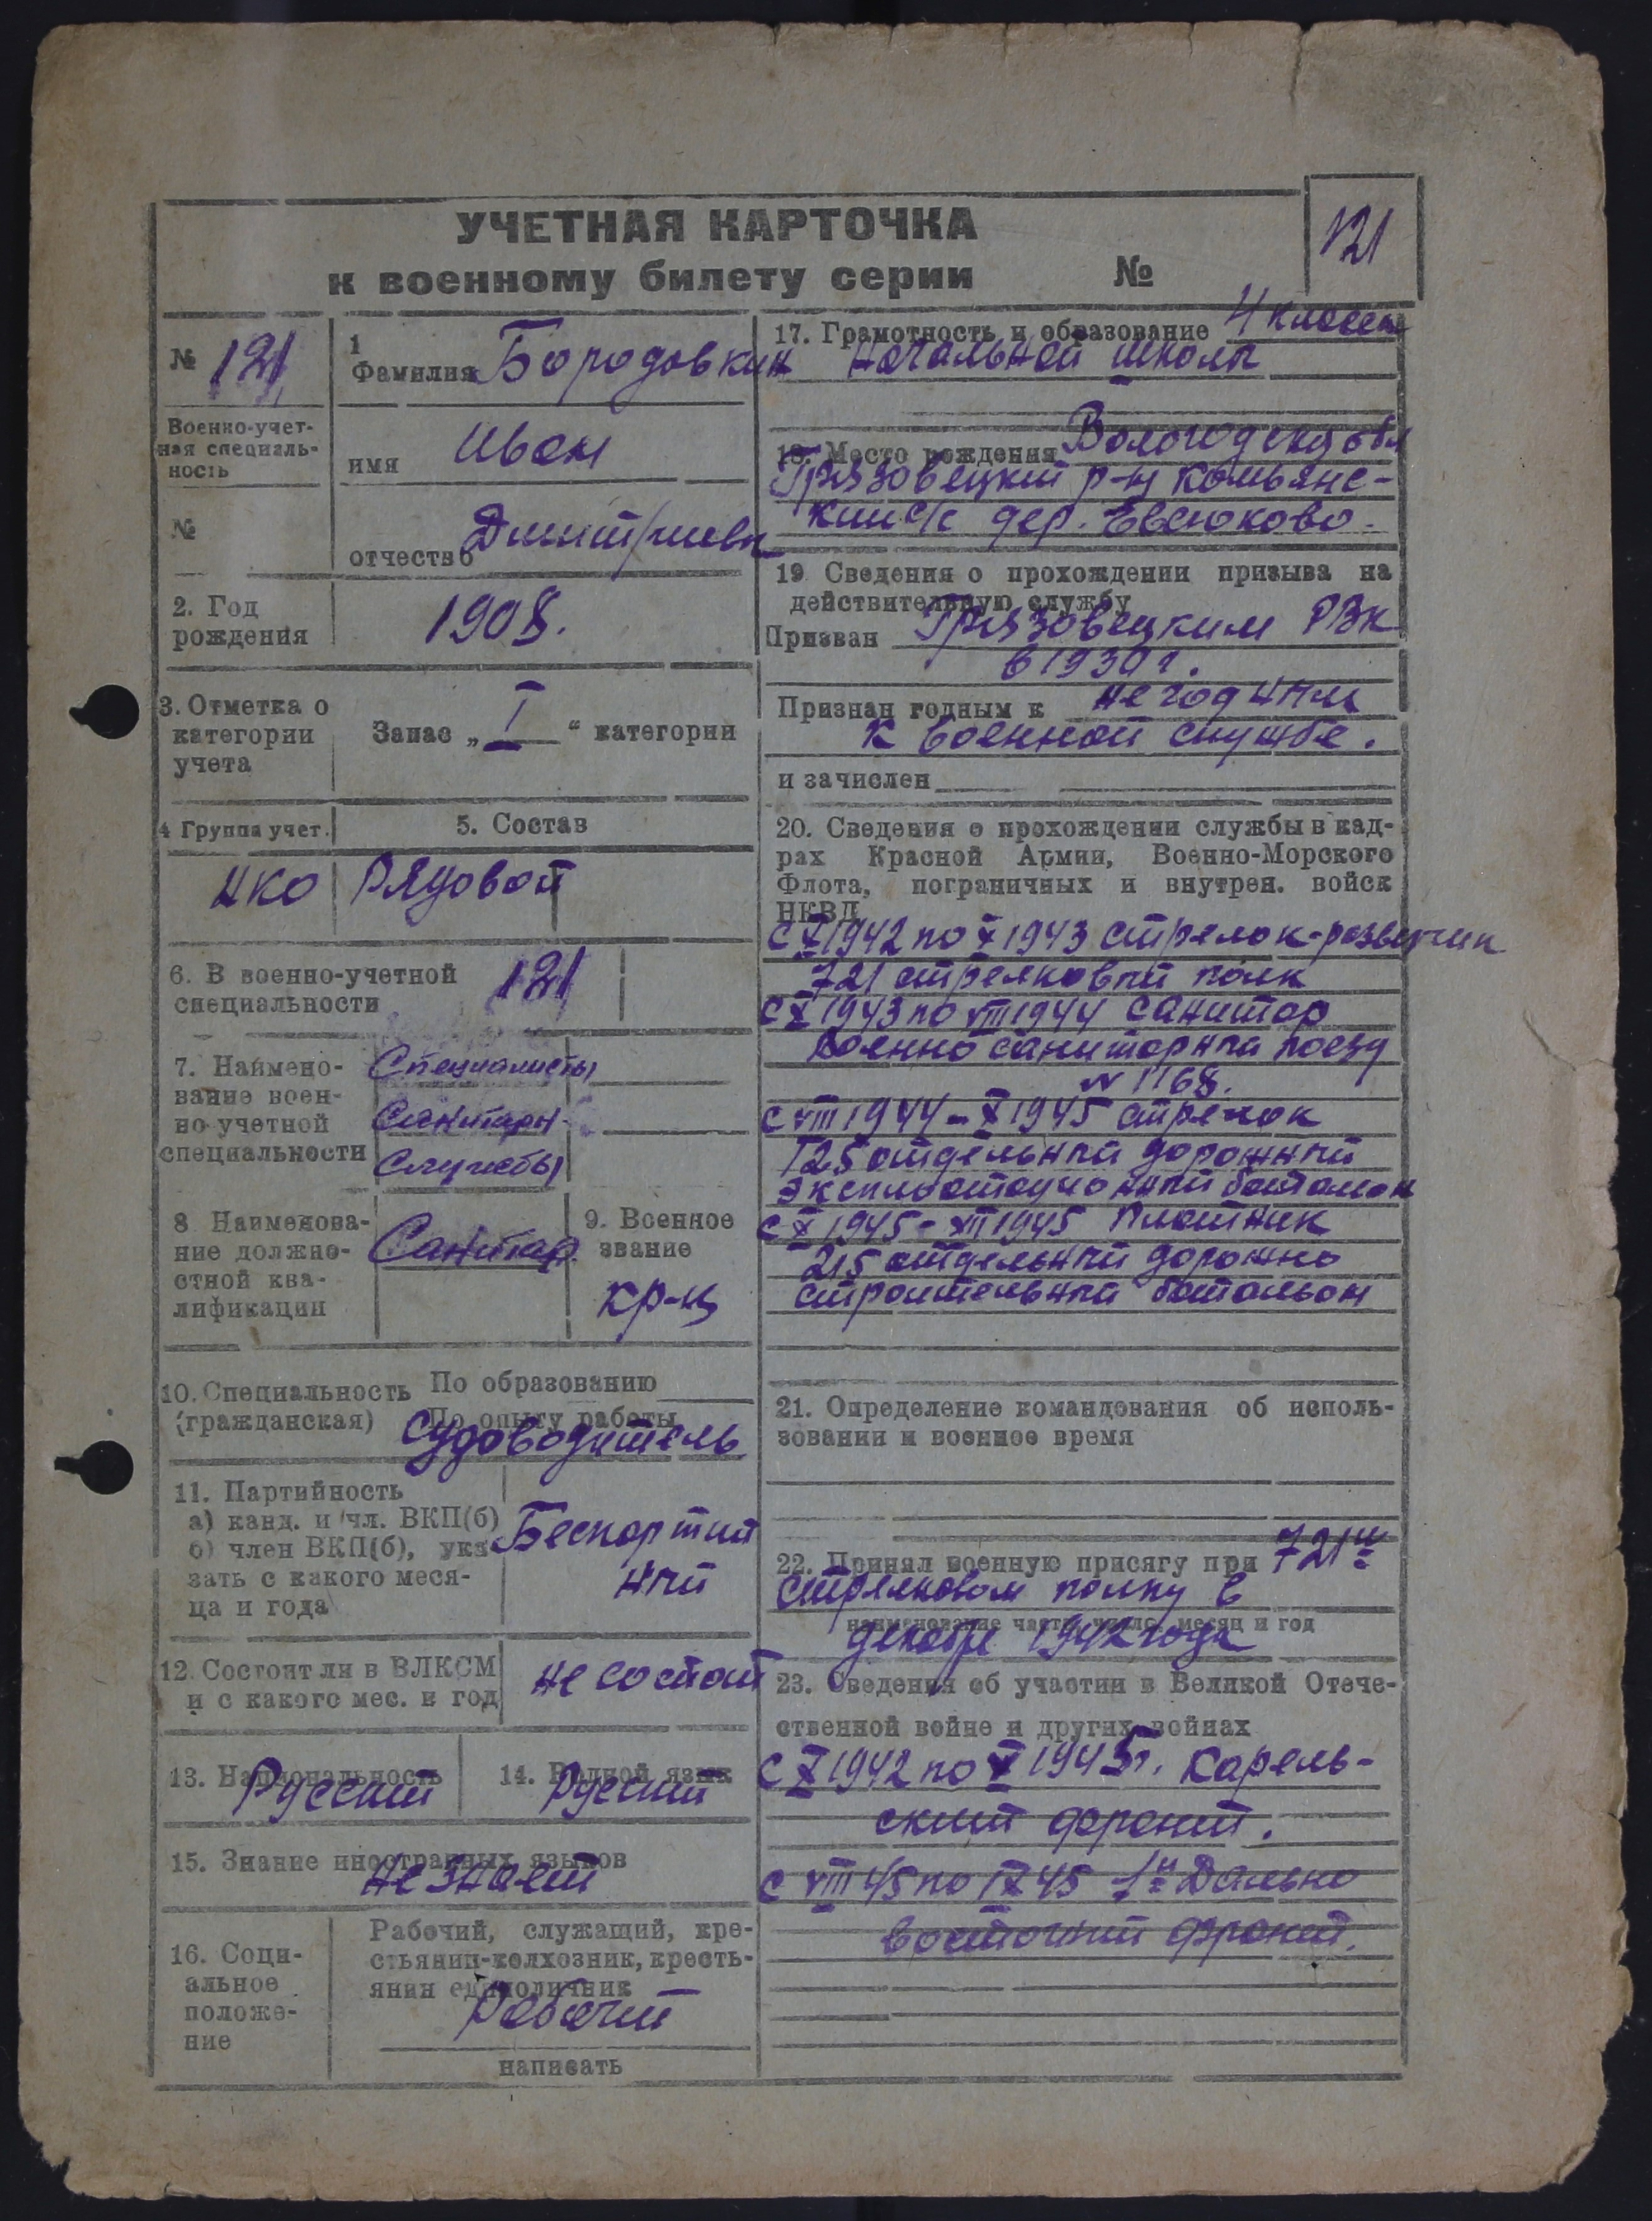 УЧЕТНАЯ КАРТОЧКА
к военному билету серии №
121
№ 121
Военно-учет-
ная специаль-
ность
№
1
Фамилия Бородовкин
имя Иван
отчество Дмитриевич
2. Год
рождения
1908.
3. Отметка о
категории
учета
Запас „ I “ категории
4 Группа учет.
5. Состав
НКО
Рядовой
6. В военно-учетной
специальности
121
7. Наимено-
вание воен-
но-учетной
специальности
Специалисты
Санитарн.
Службы
8. Наименова-
ние должно-
стной ква-
лификации
Санитар.
9. Военное
звание
кр-ц
10. Специальность
(гражданская)
По образованию
По опыту работы
Судоводитель
11. Партийность
а) канд. и чл. ВКП(б)
б) член ВКП(б), ука-
зать с какого меся-
ца и года
Беспартий
ный
12. Состоит ли в ВЛКСМ
и с какого мес. и год
не состоит
13. Национальность
Русский
14. Родной язык
Русский
15. Знание иностранных языков
не знает
16. Соци-
альное
положе-
ние
Рабочий, служащий, кре-
стьянин-колхозник, кресть-
янин единоличник
Рабочий
написать
17. Грамотность и образование 4 класса
начальной школы
18. Место рождения Вологодская обл
Грязовецкий р-н Комьянс-
кий с/с дер. Евсюково.
19 Сведения о прохождении призыва на
действительную службу
Призван Грязовецким РВК
в 1930 г.
Признан годным к не годным
к военной службе.
и зачислен
20. Сведения о прохождении службы в кад-
рах Красной Армии, Военно-Морского
Флота, пограничных и внутрен. войск
НКВД
с X 1942 по X 1943 стрелок-разведчик
721 стрелковый полк
с X 1943 по VIII 1944 санитар
военно санитарный поезд
N 1168.
с VIII 1944 - X 1945 стрелок
125 отдельный дорожный
эксплоатационный баталион
с X 1945 - XII 1945 плотник
215 отдельный дорожно
строительный батальон
21. Определение командования об исполь-
зовании в военное время
22. Принял военную присягу при 721м
стрелковом полку в
наименование части, число, месяц и год
декабре 1942 года
23. Сведения об участии в Великой Отече-
ственной войне и других войнах
с X 1942 по V 1945 г. Карель-
ский фронт.
с VIII 45 по IX 45 1й Дально
восточный фронт.